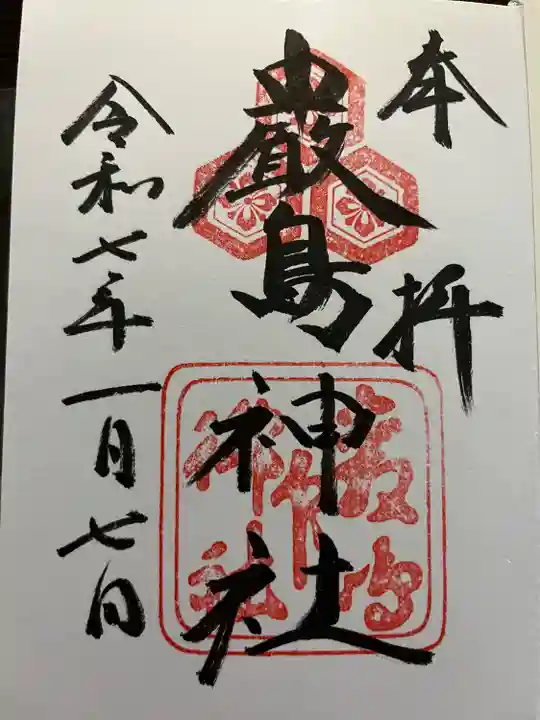 奉拝
嚴島神社
令和七年一月七日